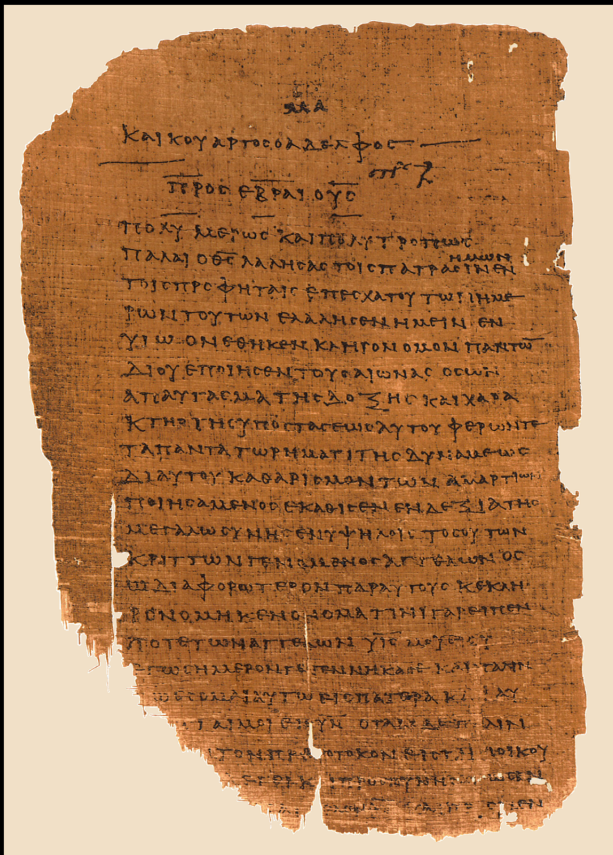 ΚΑΙ ΚΟΥΑΡΤΟϹ Ο ΑΔΕΛΦΟϹ
ΠΡΟϹ ΕΒΡΑΙΟΥϹ
ΠΟΛΥΜΕΡΩϹ ΚΑΙ ΠΟΛΥΤΡΟΠΩϹ
ΗΜΩΝ
ΠΑΛΑΙ Ο Θ̅Ϲ̅ ΛΑΛΗϹΑϹ ΤΟΙϹ ΠΑΤΡΑϹΙΝ ΕΝ
ΤΟΙϹ ΠΡΟΦΗΤΑΙϹ ΕΠ ΕϹΧΑΤΟΥ ΤΩΝ ΗΜΕ
ΡΩΝ ΤΟΥΤΩΝ ΕΛΑΛΗϹΕΝ ΗΜΕΙΝ ΕΝ
ΥΙΩ ΟΝ ΕΘΗΚΕΝ ΚΛΗΡΟΝΟΜΟΝ ΠΑΝΤΩ̅
ΔΙ ΟΥ ΕΠΟΙΗϹΕΝ ΤΟΥϹ ΑΙΩΝΑϹ ΟϹ ΩΝ
ΑΠΑΥΓΑϹΜΑ ΤΗϹ ΔΟΞΗϹ ΚΑΙ ΧΑΡΑ
ΚΤΗΡ ΤΗϹ ΥΠΟϹΤΑϹΕΩϹ ΑΥΤΟΥ ΦΕΡΩΝ ΤΕ
ΤΑ ΠΑΝΤΑ ΤΩ ΡΗΜΑΤΙ ΤΗϹ ΔΥΝΑΜΕΩϹ
ΔΙ ΑΥΤΟΥ ΚΑΘΑΡΙϹΜΟΝ ΤΩΝ ΑΜΑΡΤΙΩΝ
ΠΟΙΗϹΑΜΕΝΟϹ ΕΚΑΘΙϹΕΝ ΕΝ ΔΕΞΙΑ ΤΗϹ
ΜΕΓΑΛΩϹΥΝΗϹ ΕΝ ΥΨΗΛΟΙϹ ΤΟϹΟΥΤΩΝ
ΚΡΙΤΤΩΝ ΓΕΝΑΜΕΝΟϹ ΑΓΓΕΛΩΝ ΟϹ
Ω ΔΙΑΦΟΡΩΤΕΡΟΝ ΠΑΡ ΑΥΤΟΥϹ ΚΕΚΛΗ
ΡΟΝΟΜΗΚΕΝ ΟΝΟΜΑ ΤΙΝΙ ΓΑΡ ΕΙΠΕΝ
ΠΟΤΕ ΤΩΝ ΑΓΓΕΛΩΝ Υ̅Ι̅Ϲ̅ ΜΟΥ ΕΙ ϹΥ
ΕΓΩ ϹΗΜΕΡΟΝ ΓΕΓΕΝΝΗΚΑ ϹΕ ΚΑΙ ΠΑΛΙΝ
ΕϹΟΜΑΙ ΑΥΤΩ ΕΙϹ ΠΑΤΕΡΑ ΚΑΙ ΑΥ
ΕϹΤΑΙ ΜΟΙ ΕΙϹ Υ̅Ν̅ ΟΤΑΝ ΔΕ ΠΑΛΙΝ
ΤΟΝ ΠΡΩΤΟΤΟΚΟΝ ΕΙϹ ΤΗΝ ΟΙΚΟΥ